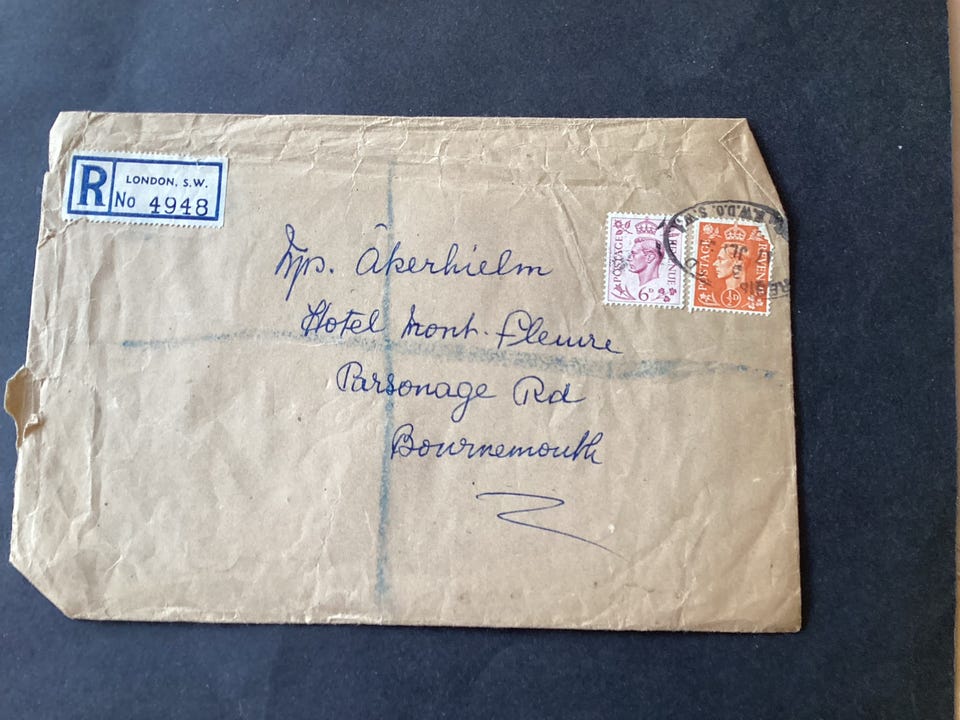 R
LONDON. S.W.
No 4948
POSTAGE REVENUE
6D
POSTAGE REVENUE
½D
W.D.O. S.W.1
JL
Mrs. Åkerhielm
Hotel Mont-Fleure
Parsonage Rd
Bournemouth